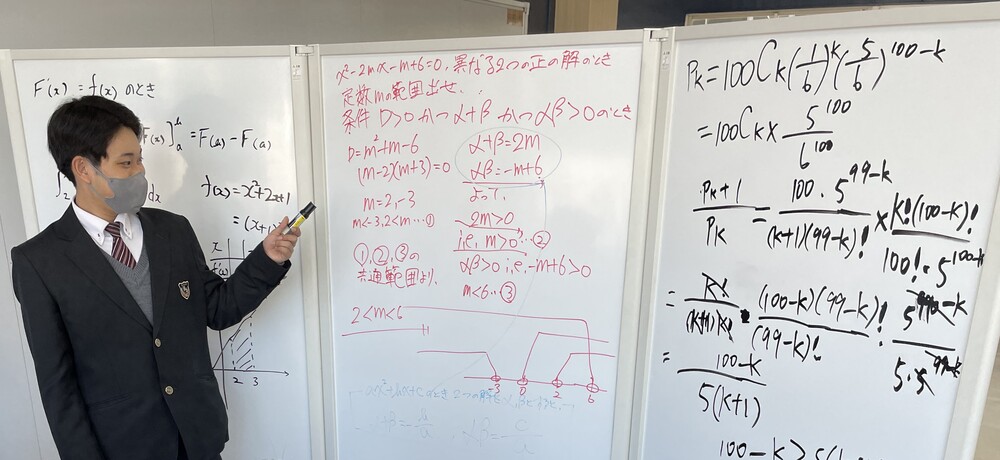 F(x) = f(x) のとき
F(x)]ᵇₐ = F(b) - F(a)
∫₂ dx
f(x) = x²+2x+1
= (x+1)²
x
f(x)
2 3
x²-2mx-m+6=0, 異なる2つの正の解のとき
定数mの範囲出せ.
条件 D>0 かつ α+β かつ αβ>0 のとき
D=m²+m-6
(m-2)(m+3)=0
m=2,-3
m<-3,2<m…①
①,②,③の
共通範囲より,
2<m<6
α+β=2m
αβ=-m+6
よって,
2m>0
i,e, m>0…②
αβ>0 i,e,-m+6>0
m<6…③
-3 0 2 6
Pk=100Ck(1/6)^k(5/6)^100-k
=100Ck× 5^100/6^100
Pk+1/Pk = 100・5^99-k/(k+1)(99-k)! × k!(100-k)!/100!・5^100-k
= k!/(k+1)k!・(100-k)(99-k)!/(99-k)! 5^99-k/5・5^99-k
= 100-k/5(k+1)
100-k>5(